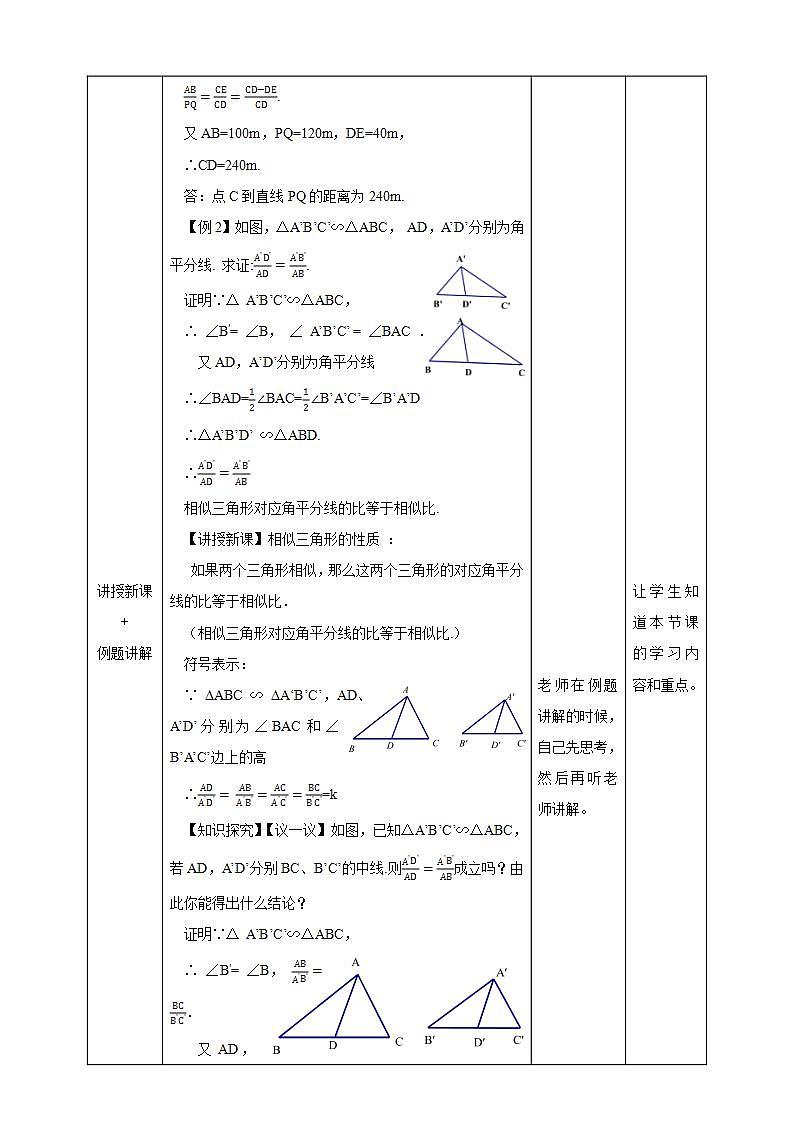 AB/PQ = CE/CD = CD−DE/CD.
又AB=100m,PQ=120m,DE=40m,
∴CD=240m.
答:点C到直线PQ的距离为240m.
【例2】如图,△A’B’C’∽△ABC, AD,A’D’分别为角
平分线. 求证:A’D’/AD = A’B’/AB.
证明∵△ A’B’C’∽△ABC,
∴ ∠B'= ∠B, ∠ A’B’C’ = ∠BAC .
又AD,A’D’分别为角平分线
∴∠BAD=1/2∠BAC=1/2∠B’A’C’=∠B’A’D
∴△A’B’D’ ∽△ABD.
∴A’D’/AD = A’B’/AB
A′
B′ D′ C′
A
B D C
相似三角形对应角平分线的比等于相似比.
【讲授新课】相似三角形的性质 :
如果两个三角形相似,那么这两个三角形的对应角平分
线的比等于相似比.
(相似三角形对应角平分线的比等于相似比.)
符号表示:
∵ ΔABC ∽ ΔA‘B’C’,AD、
A’D’分别为∠BAC和∠
B’A’C’边上的高
∴AD/A’D’ = AB/A’B’ = AC/A’C’ = BC/B’C’=k
A
B D C
A′
B′ D′ C′
【知识探究】【议一议】如图,已知△A’B’C’∽△ABC,
若AD,A’D’分别BC、B’C’的中线.则A’D’/AD = A’B’/AB成立吗?由
此你能得出什么结论?
证明∵△ A’B’C’∽△ABC,
∴ ∠B'= ∠B, AB/A’B’ =
BC/B’C’.
又 AD,
A
B D C
A′
B′ D′ C′
讲授新课
+
例题讲解
老师在例题
讲解的时候,
自己先思考,
然后再听老
师讲解。
让学生知
道本节课
的学习内
容和重点。